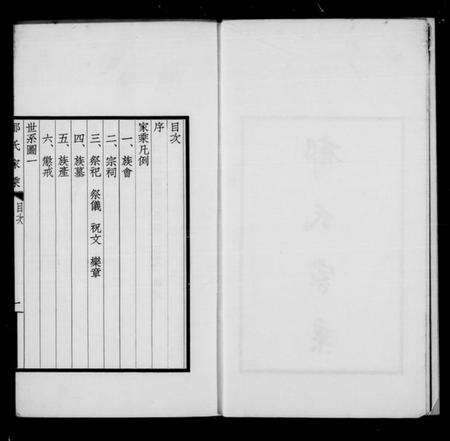 目次
序
家乘凡例
一、族會
二、宗祠
三、祭祀 祭儀 祝文 樂章
四、族墓
五、族產
六、懲戒
世系圖一
氏家乘 目次 一
氏家乘